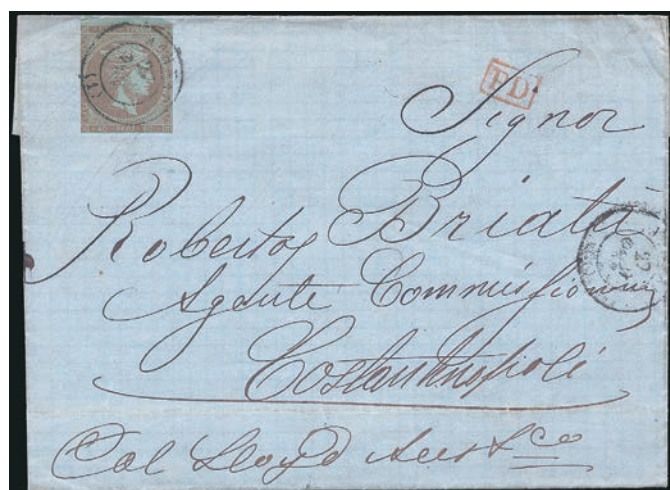 PD
Signor
Roberto Briata
Agente Commissionario
Costantinopoli
Col Lloyd Aust co